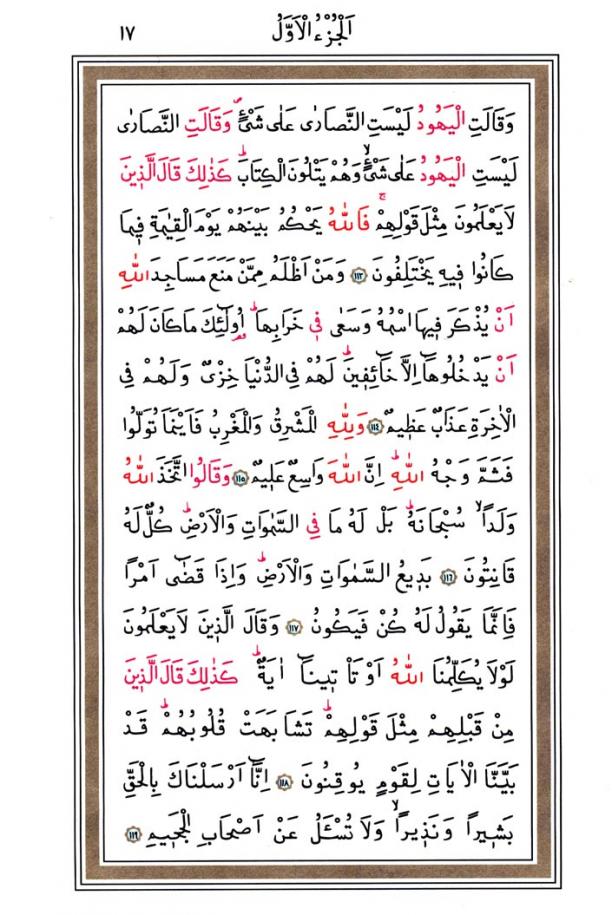 اَلْجُزْءُ الْاَوَّلُ
١٧
وَقَالَتِ الْيَهُودُ لَيْسَتِ النَّصَارٰى عَلٰى شَيْءٍۖ وَقَالَتِ النَّصَارٰى
لَيْسَتِ الْيَهُودُ عَلٰى شَيْءٍۙ وَهُمْ يَتْلُونَ الْكِتَابَۜ كَذٰلِكَ قَالَ الَّذ۪ينَ
لَا يَعْلَمُونَ مِثْلَ قَوْلِهِمْۚ فَاللّٰهُ يَحْكُمُ بَيْنَهُمْ يَوْمَ الْقِيٰمَةِ ف۪يمَا
كَانُوا ف۪يهِ يَخْتَلِفُونَ ﴿١١٣﴾ وَمَنْ اَظْلَمُ مِمَّنْ مَنَعَ مَسَاجِدَ اللّٰهِ
اَنْ يُذْكَرَ ف۪يهَا اسْمُهُ وَسَعٰى ف۪ي خَرَابِهَاۜ اُو۬لٰٓئِكَ مَا كَانَ لَهُمْ
اَنْ يَدْخُلُوهَٓا اِلَّا خَٓائِف۪ينَۜ لَهُمْ فِي الدُّنْيَا خِزْيٌ وَلَهُمْ فِي
الْاٰخِرَةِ عَذَابٌ عَظ۪يمٌ ﴿١١٤﴾ وَلِلّٰهِ الْمَشْرِقُ وَالْمَغْرِبُ فَاَيْنَمَا تُوَلُّوا
فَثَمَّ وَجْهُ اللّٰهِۜ اِنَّ اللّٰهَ وَاسِعٌ عَل۪يمٌ ﴿١١٥﴾ وَقَالُوا اتَّخَذَ اللّٰهُ
وَلَداًۙ سُبْحَانَهُۜ بَلْ لَهُ مَا فِي السَّمٰوَاتِ وَالْاَرْضِۜ كُلٌّ لَهُ
قَانِتُونَ ﴿١١٦﴾ بَد۪يعُ السَّمٰوَاتِ وَالْاَرْضِۜ وَاِذَا قَضٰٓى اَمْراً
فَاِنَّمَا يَقُولُ لَهُ كُنْ فَيَكُونُ ﴿١١٧﴾ وَقَالَ الَّذ۪ينَ لَا يَعْلَمُونَ
لَوْلَا يُكَلِّمُنَا اللّٰهُ اَوْ تَأْت۪ينَٓا اٰيَةٌۜ كَذٰلِكَ قَالَ الَّذ۪ينَ
مِنْ قَبْلِهِمْ مِثْلَ قَوْلِهِمْۜ تَشَابَهَتْ قُلُوبُهُمْۜ قَدْ
بَيَّنَّا الْاٰيَاتِ لِقَوْمٍ يُوقِنُونَ ﴿١١٨﴾ اِنَّٓا اَرْسَلْنَاكَ بِالْحَقِّ
بَش۪يراً وَنَذ۪يراًۙ وَلَا تُسْـَٔلُ عَنْ اَصْحَابِ الْجَح۪يمِ ﴿١١٩﴾